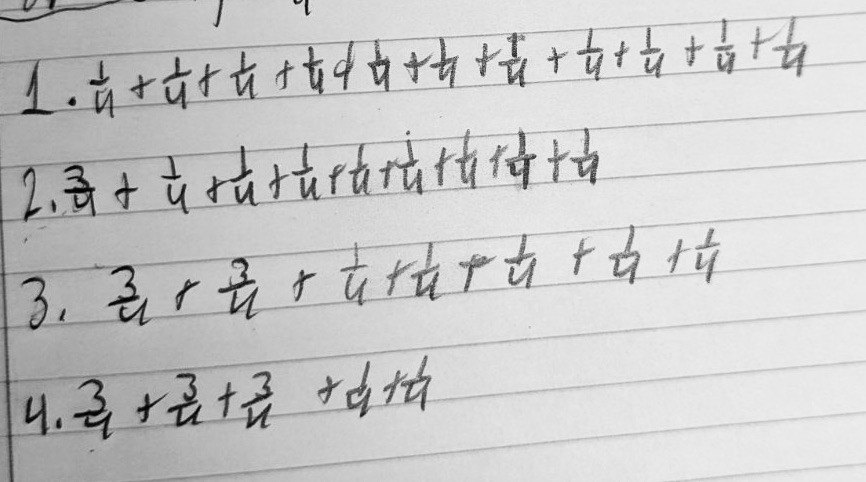 1. 1/4 + 1/4 + 1/4 + 1/4 + 1/4 + 1/4 + 1/4 + 1/4 + 1/4 + 1/4 + 1/4
2. 3/4 + 1/4 + 1/4 + 1/4 + 1/4 + 1/4 + 1/4 + 1/4 + 1/4
3. 3/4 + 3/4 + 1/4 + 1/4 + 1/4 + 1/4 + 1/4
4. 3/4 + 3/4 + 3/4 + 1/4 + 1/4